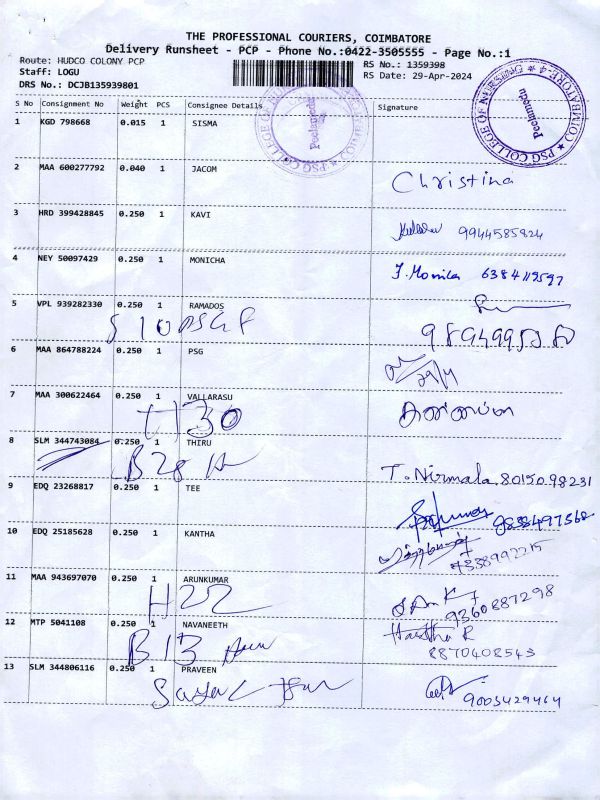 THE PROFESSIONAL COURIERS, COIMBATORE
Delivery Runsheet - PCP - Phone No.:0422-3505555 - Page No.:1
Route: HUDCO COLONY PCP
RS No.: 1359398
Staff: LOGU
RS Date: 29-Apr-2024
DRS No.: DCJB135939801
PSG COLLEGE OF NURSING COIMBATORE-4
Peelamedu
S No Consignment No Weight PCS Consignee Details Signature
1 KGD 798668 0.015 1 SISMA
2 MAA 600277792 0.040 1 JACOM
Christina
3 HRD 399428845 0.250 1 KAVI
9944585824
4 NEY 50097429 0.250 1 MONICHA
J. Monika 6384112597
5 VPL 939282330 0.250 1 RAMADOS
6 MAA 864788224 0.250 1 PSG
29/4
7 MAA 300622464 0.250 1 VALLARASU
H30
8 SLM 344743084 0.250 1 THIRU
B28
T. Nirmala. 80150 98231
9 EDQ 23268817 0.250 1 TEE
9838497568
10 EDQ 25185628 0.250 1 KANTHA
11 MAA 943697070 0.250 1 ARUNKUMAR
H22
9360887298
12 MTP 5041108 0.250 1 NAVANEETH
B13
Haritha R
8870408543
13 SLM 344806116 0.250 1 PRAVEEN
9003429464